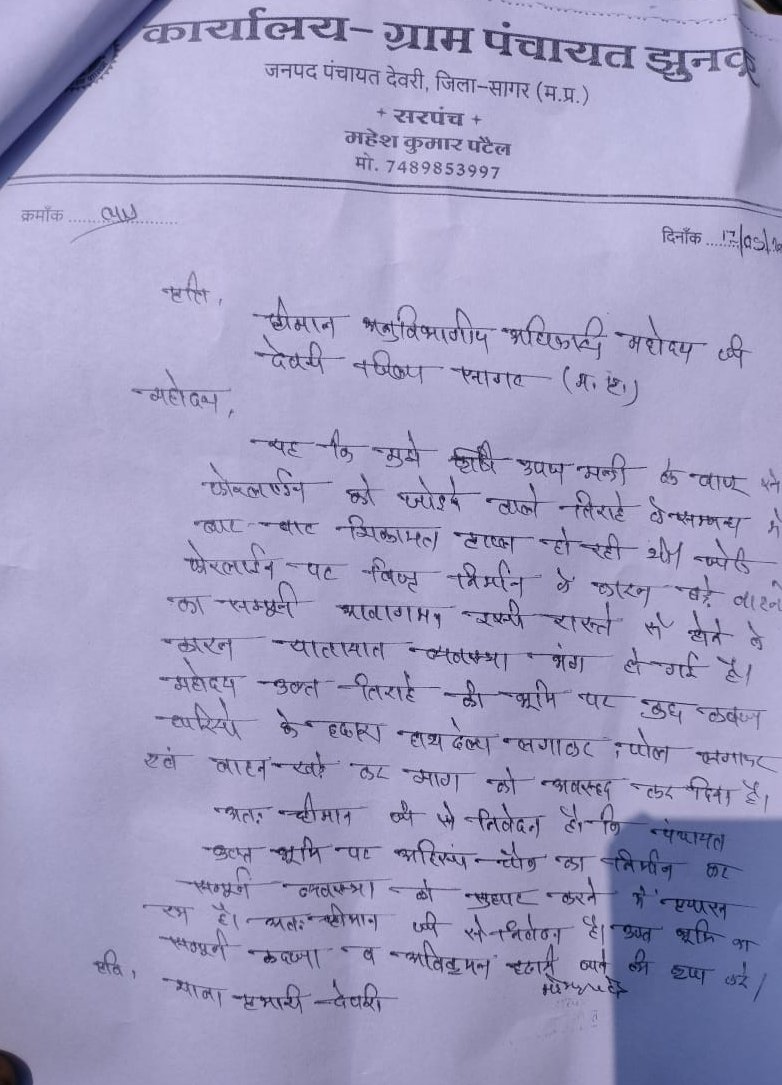 कार्यालय- ग्राम पंचायत झुनकू
जनपद पंचायत देवरी, जिला-सागर (म.प्र.)
+ सरपंच +
महेश कुमार पटैल
मो. 7489853997
क्रमाँक
दिनाँक 17/05/
प्रति,
श्रीमान अनुविभागीय अधिकारी महोदय जी
देवरी जिला सागर (म.प्र.)
महोदय,
यह कि मुझे कृषि उपज मन्डी के पास से
फोरलाईन को जोड़ने वाले तिराहे के सम्बन्ध में
बार-बार शिकायत प्राप्त हो रही थी।
फोरलाईन पर ब्रिज निर्माण के कारन बड़े वाहनो
का सम्पूर्न आवागमन इसी रास्ते से होने के
कारन यातायात व्यवस्था भंग हो गई है।
महोदय उक्त तिराहे की भूमि पर कुछ कब्जा
धारियो के द्वारा हाथठेला लगाकर, पोल लगाकर
एवं वाहन खड़े कर मार्ग को अवरूद्ध कर दिया है।
अतः श्रीमान जी से निवेदन है। कि पंचायत
उक्त भूमि पर चौक का निर्मान कर
सम्पूर्न व्यवस्था को करने में प्रयास
रत है। अतः श्रीमान जी से निवेदन है। उक्त भूमि का
सम्पूर्न कब्जा व अतिक्रमन हटाये जाने की कृपा करें।
प्रति,
थाना प्रभारी देवरी